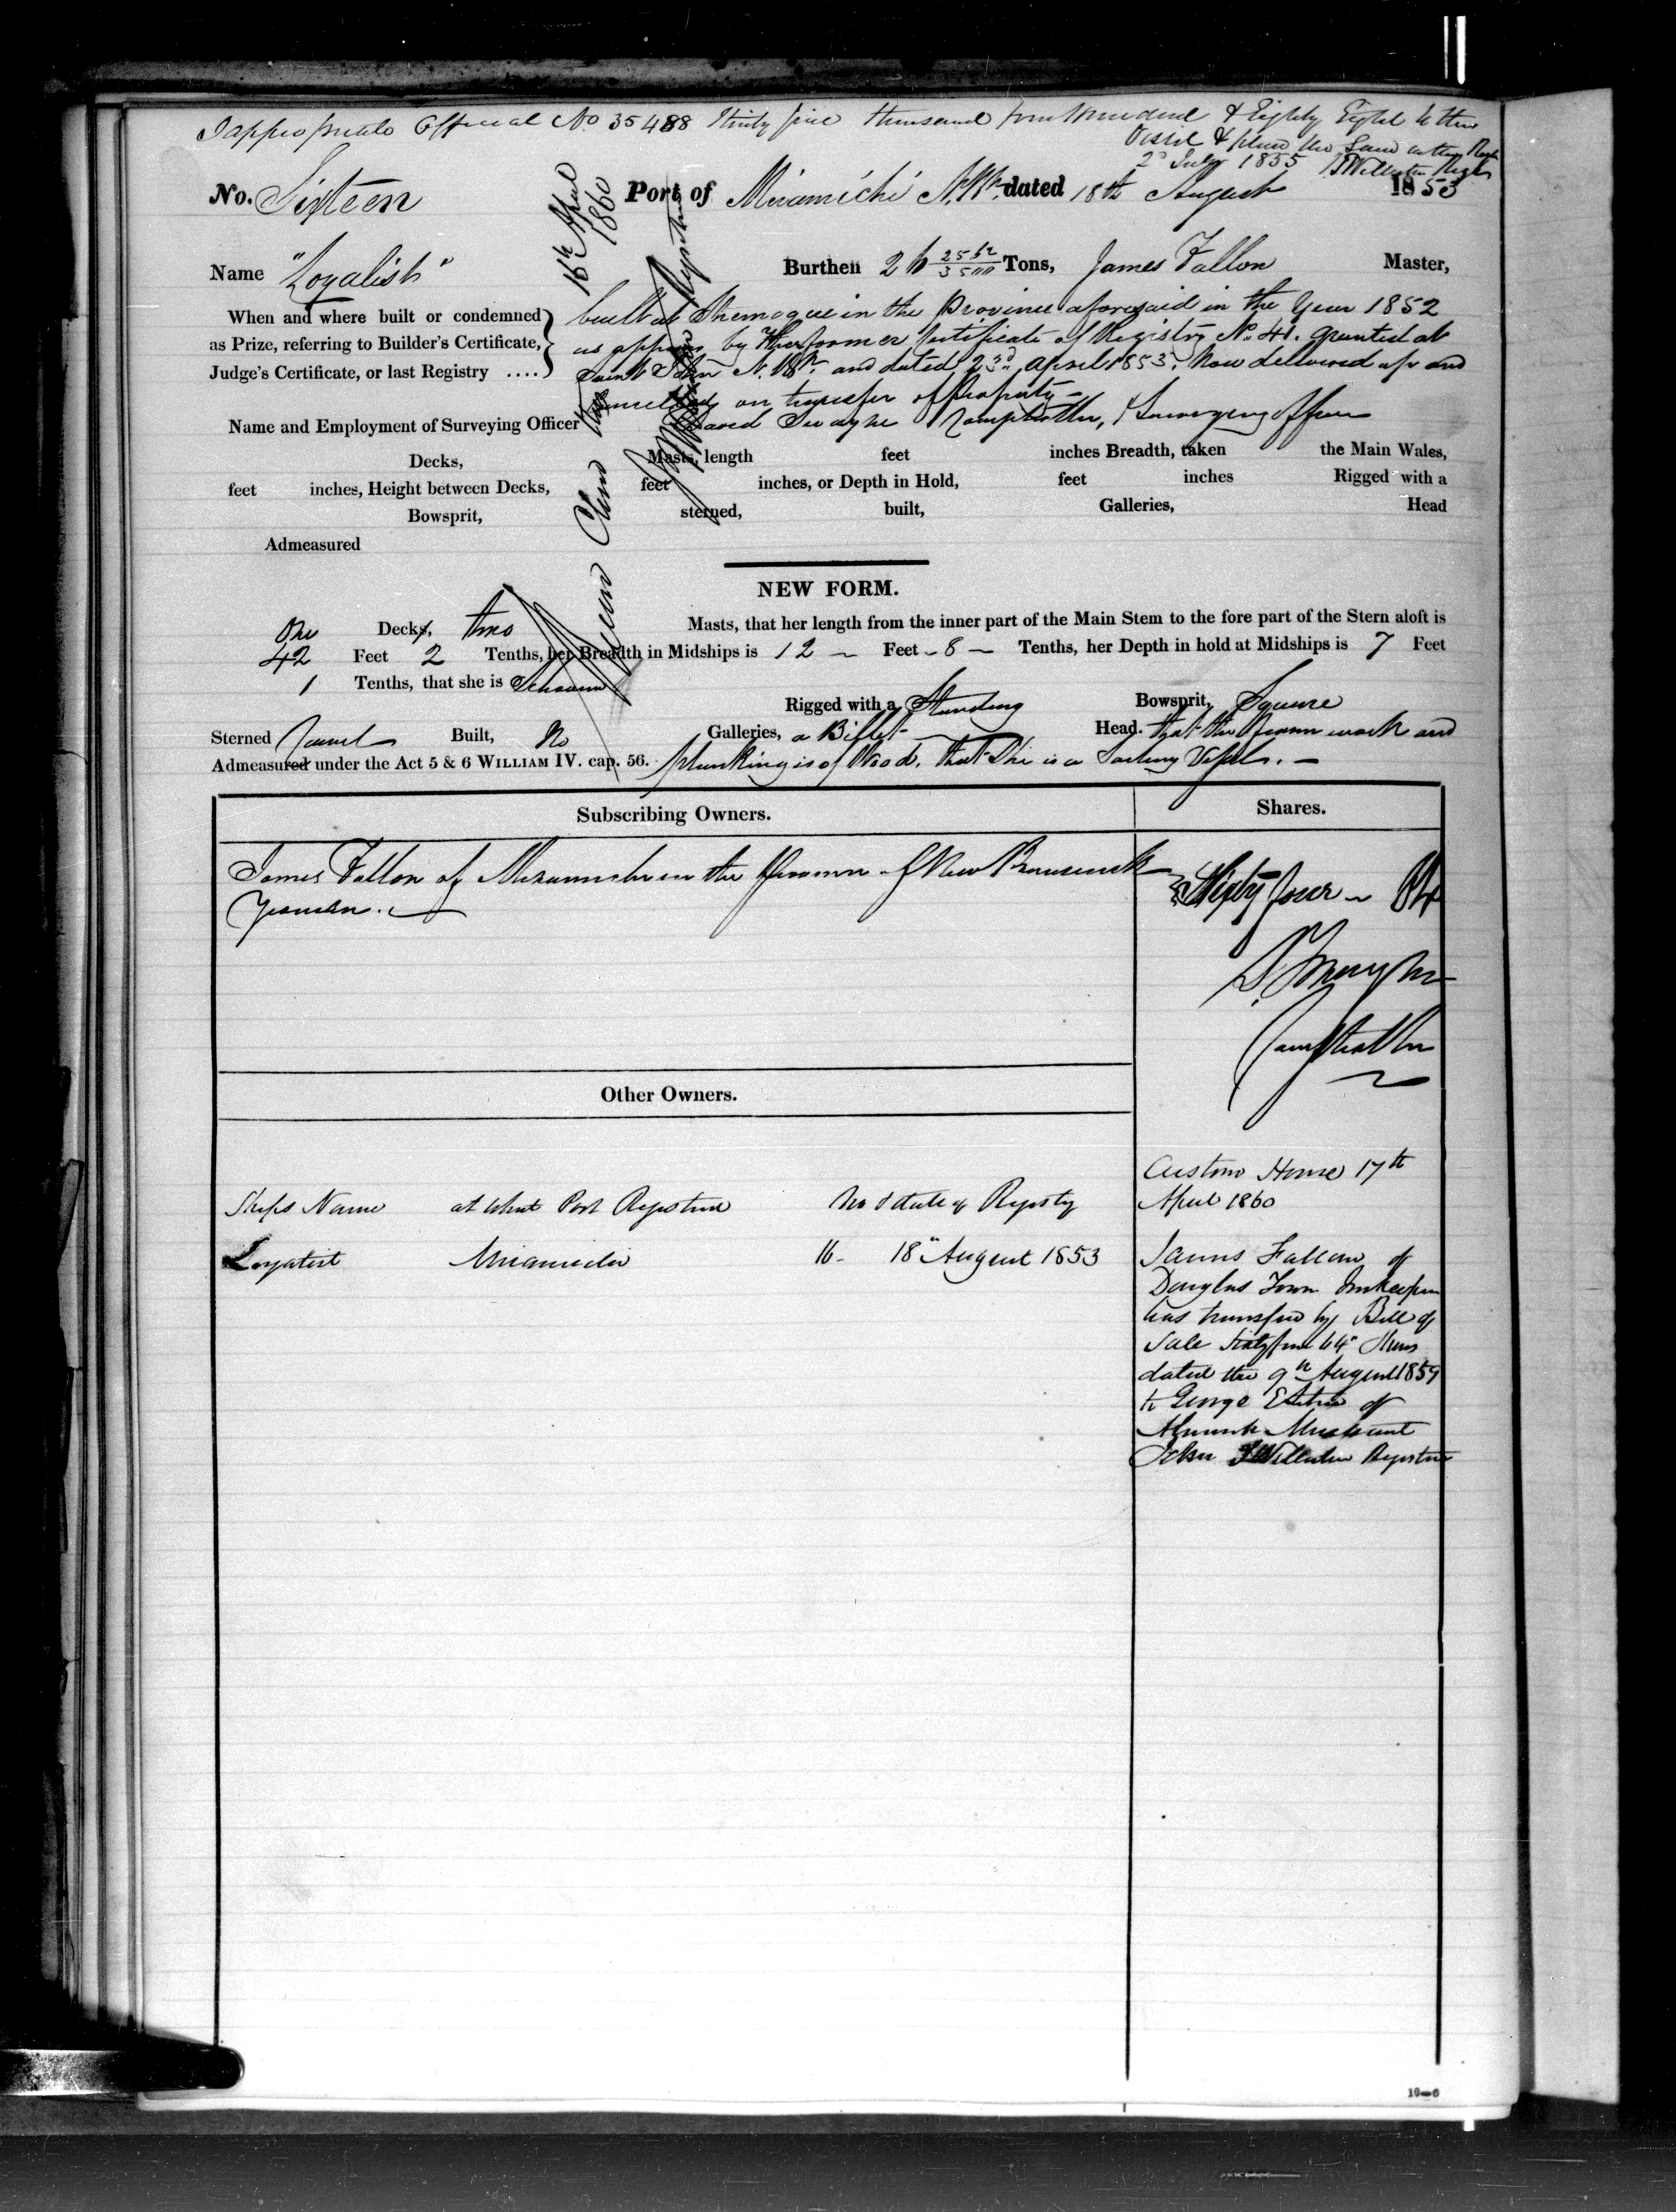 I appropriate Official No 35488 Thirty five thousand four hundred & Eighty Eight to this
Vessel & place the Same in the
2d July 1855 J Williston
No. Sixteen Port of Miramichi N. Bk. dated 18th August 1853
Name "Loyalist" Burthen Tons, James Fallon Master,
When and where built or condemned
as Prize, referring to Builder's Certificate,
Judge's Certificate, or last Registry ....
built at Shemogue in the Province aforesaid in the Year 1852
as appears by the former Certificate of Registry No. 41. granted at
Saint John N. Bk. and dated 23d April 1853. Now delivered up and
Cancelled on transfer of Property
Name and Employment of Surveying Officer David Swayne Comptroller, & Surveying Officer
Decks, Masts, length feet inches Breadth, taken the Main Wales,
feet inches, Height between Decks, feet inches, or Depth in Hold, feet inches Rigged with a
Bowsprit, sterned, built, Galleries, Head
Admeasured
16th April
1860
NEW FORM.
One Decks, two Masts, that her length from the inner part of the Main Stem to the fore part of the Stern aloft is
42 Feet 2 Tenths, her Breadth in Midships is 12 Feet 8 Tenths, her Depth in hold at Midships is 7 Feet
1 Tenths, that she is Schooner
Rigged with a Standing Bowsprit, Square
Sterned Carvel Built, No Galleries, a Billet Head. that the frame work and
Admeasured under the Act 5 & 6 WILLIAM IV. cap. 56. planking is of Wood. that She is a Sailing Vessel.
Subscribing Owners. Shares.
James Fallon of Miramichi in the Province of New Brunswick
Yeoman.
Sixty four 64
D. Swayne
Comptroller
Other Owners.
Custom House 17th
April 1860
Ships Name at what Port Registered No & date of Registry
Loyalist Miramichi 16 18 August 1853
James Fallon of
Douglas Town Innkeeper
has transfered by Bill of
Sale Sixty four 64 Shares
dated the 9th August 1859
to George of
Merchant
John Williston Registrar
10-6